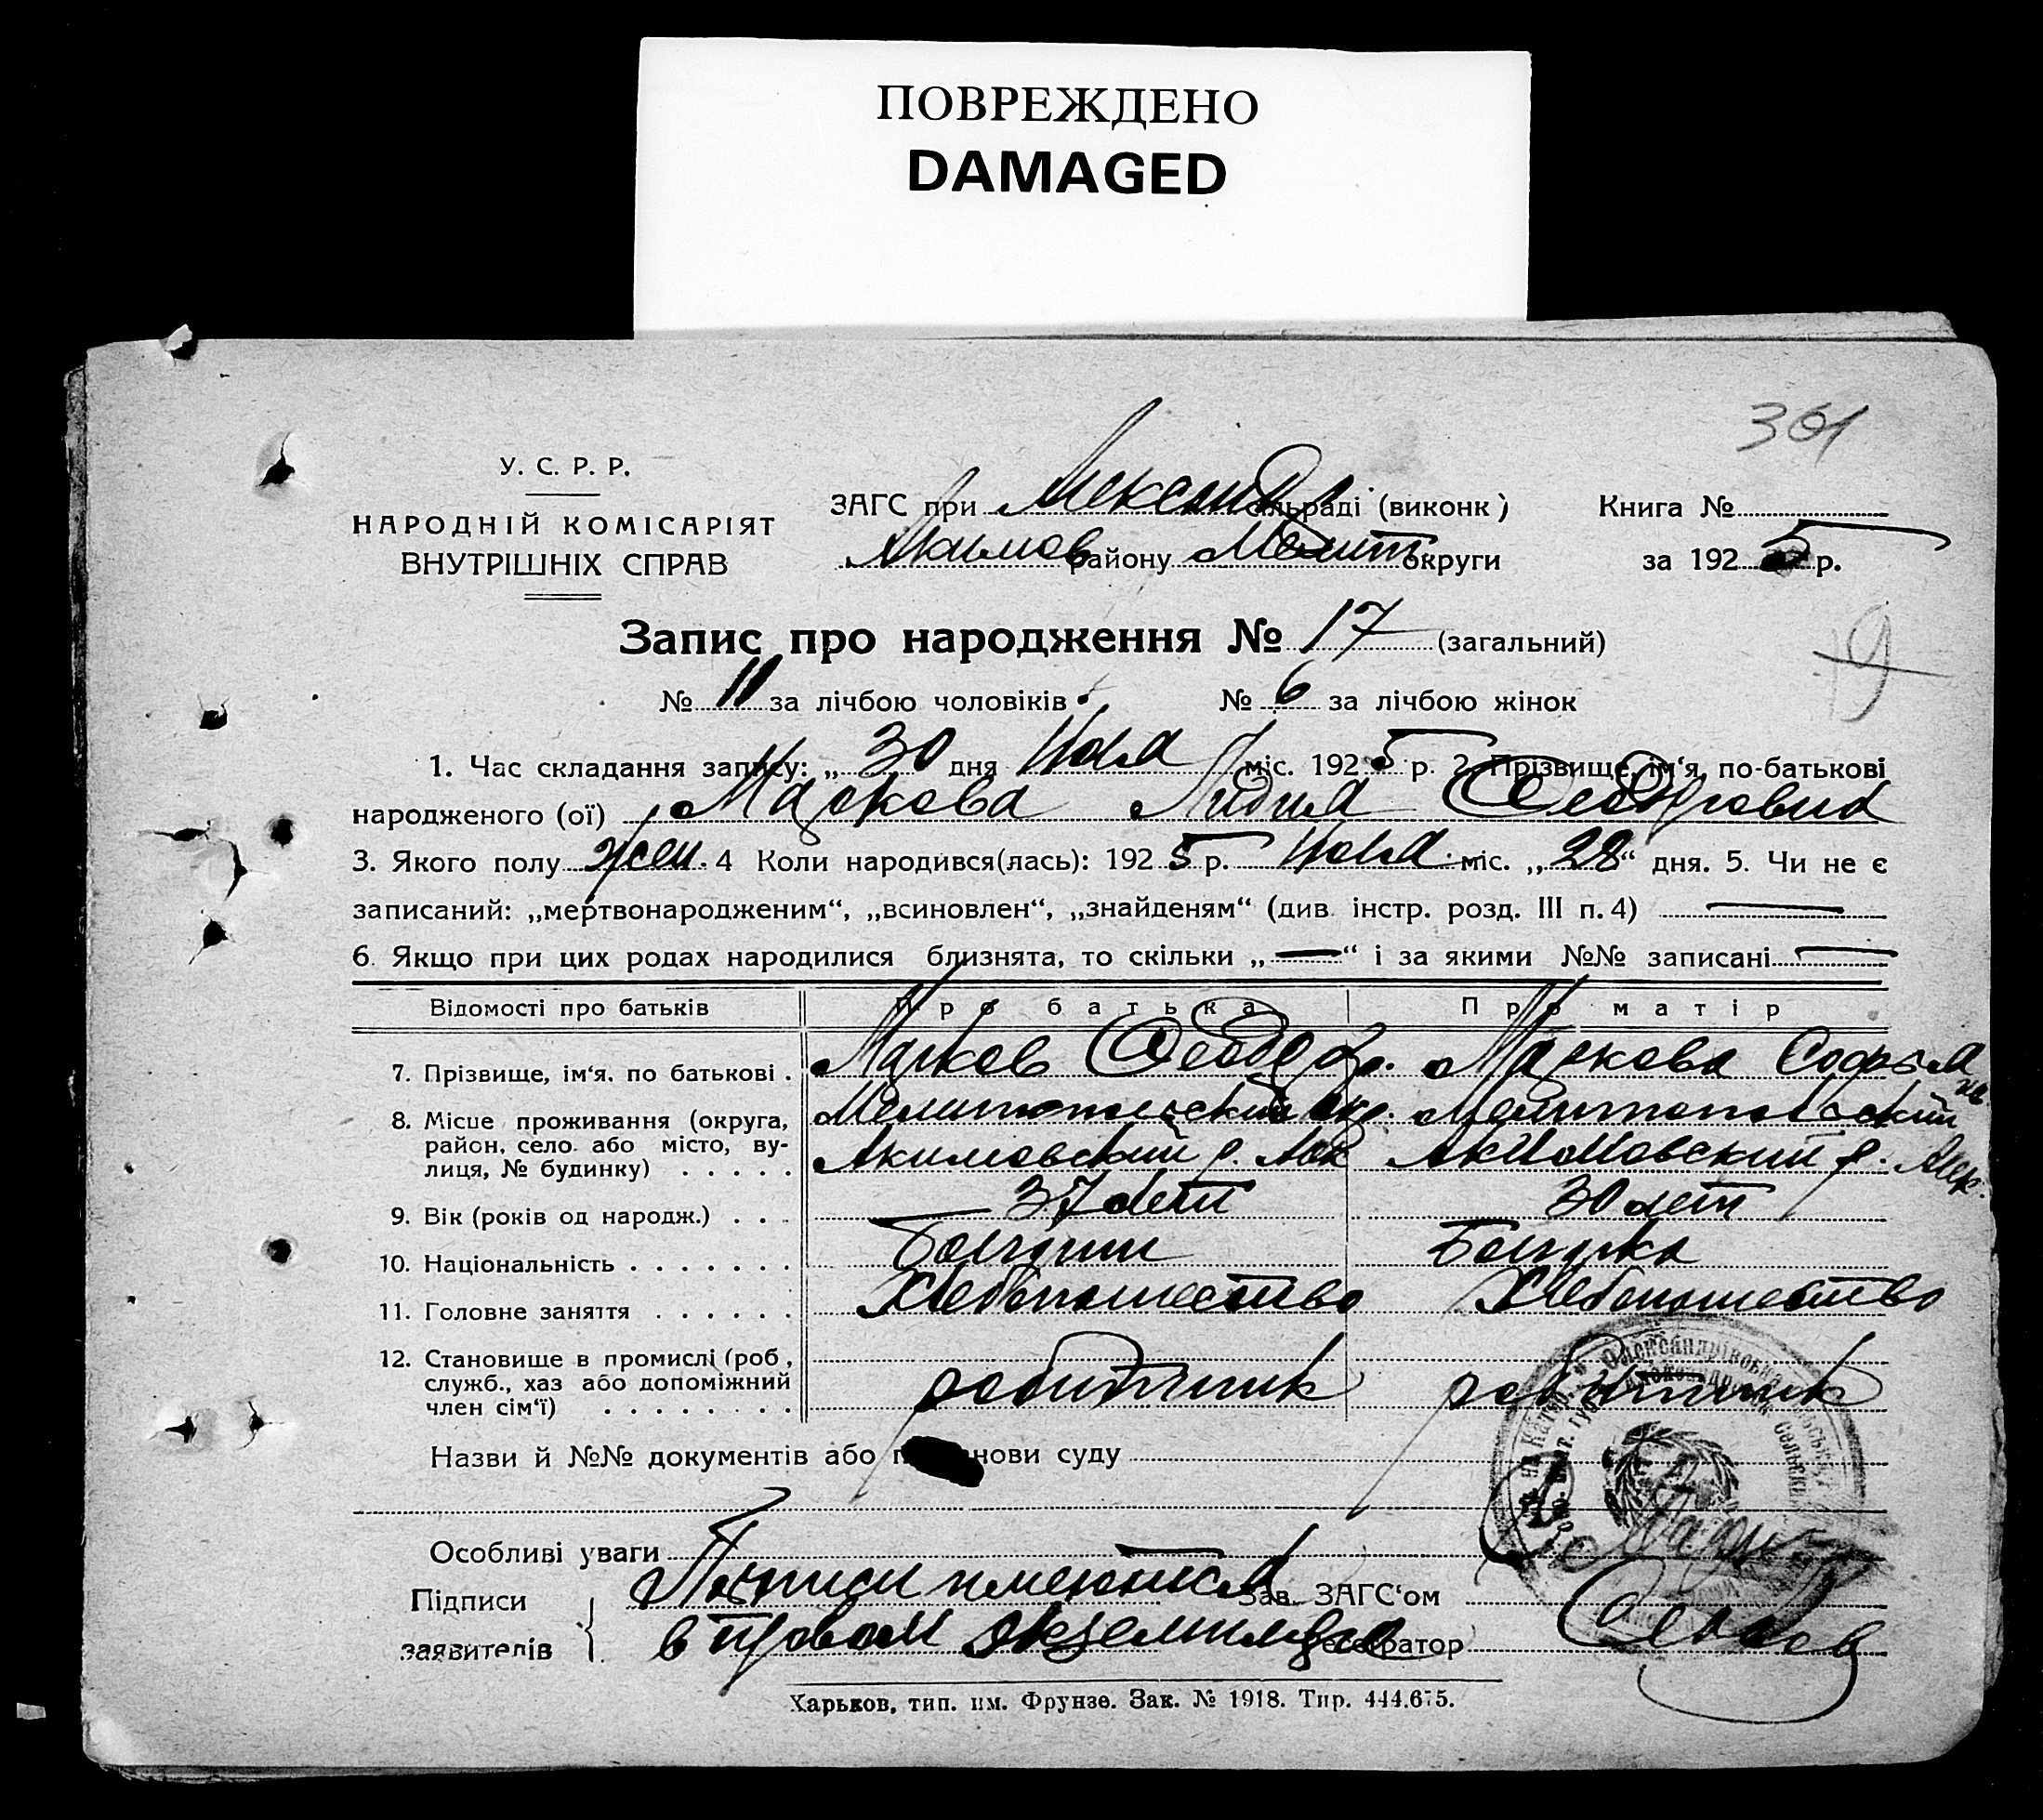 ПОВРЕЖДЕНО
DAMAGED
301
У. С. Р. Р.
НАРОДНІЙ КОМІСАРІЯТ
ВНУТРІШНІХ СПРАВ
ЗАГС при Александр сільраді (виконк)
Акимов району Мелит. округи
Книга №
за 1925 р.
Запис про народження № 17 (загальний)
19
№ 11 за лічбою чоловіків № 6 за лічбою жінок
1. Час складання запису: „ 30 дня Июля міс. 1925 р. 2. Прізвище, ім‘я, по-батькові
народженого (ої) Маркова Лидия Феодоровна
3. Якого полу жен. 4 Коли народився(лась): 1925 р. Июля міс. „28“ дня. 5. Чи не є
записаний: „мертвонародженим“, „всиновлен“, „знайденям“ (див. інстр. розд. III п. 4) —
6. Якщо при цих родах народилися близнята, то скільки „—“ і за якими №№ записані —
Відомості про батьків Про батька Про матір
7. Прізвище, ім‘я. по батькові . Марков Феодор. Маркова Софья
8. Місце проживання (округа, район, село або місто, вулиця, № будинку) . . . . . Мелитопольский окр. Мелитопольский
Акимовский р. Алек Акимовский р. Алек.
9. Вік (років од народж.) . . . — 37 лет 30 лет
10. Національність . . . . . . . Болгарин Болгарка
11. Головне заняття . . . . . . Хлебопашество Хлебопашество
12. Становище в промислі (роб., служб., хаз або допоміжний член сім‘ї) . . . . . . . . работник работник
Назви й №№ документів або постанови суду
Особливі уваги
Підписи
заявителів
Подписи имеются
в первом экземпляре
Зав. ЗАГС‘ом
Регєстратор
Харьков, тип. им. Фрунзе. Зак. № 1918. Тир. 444.675.